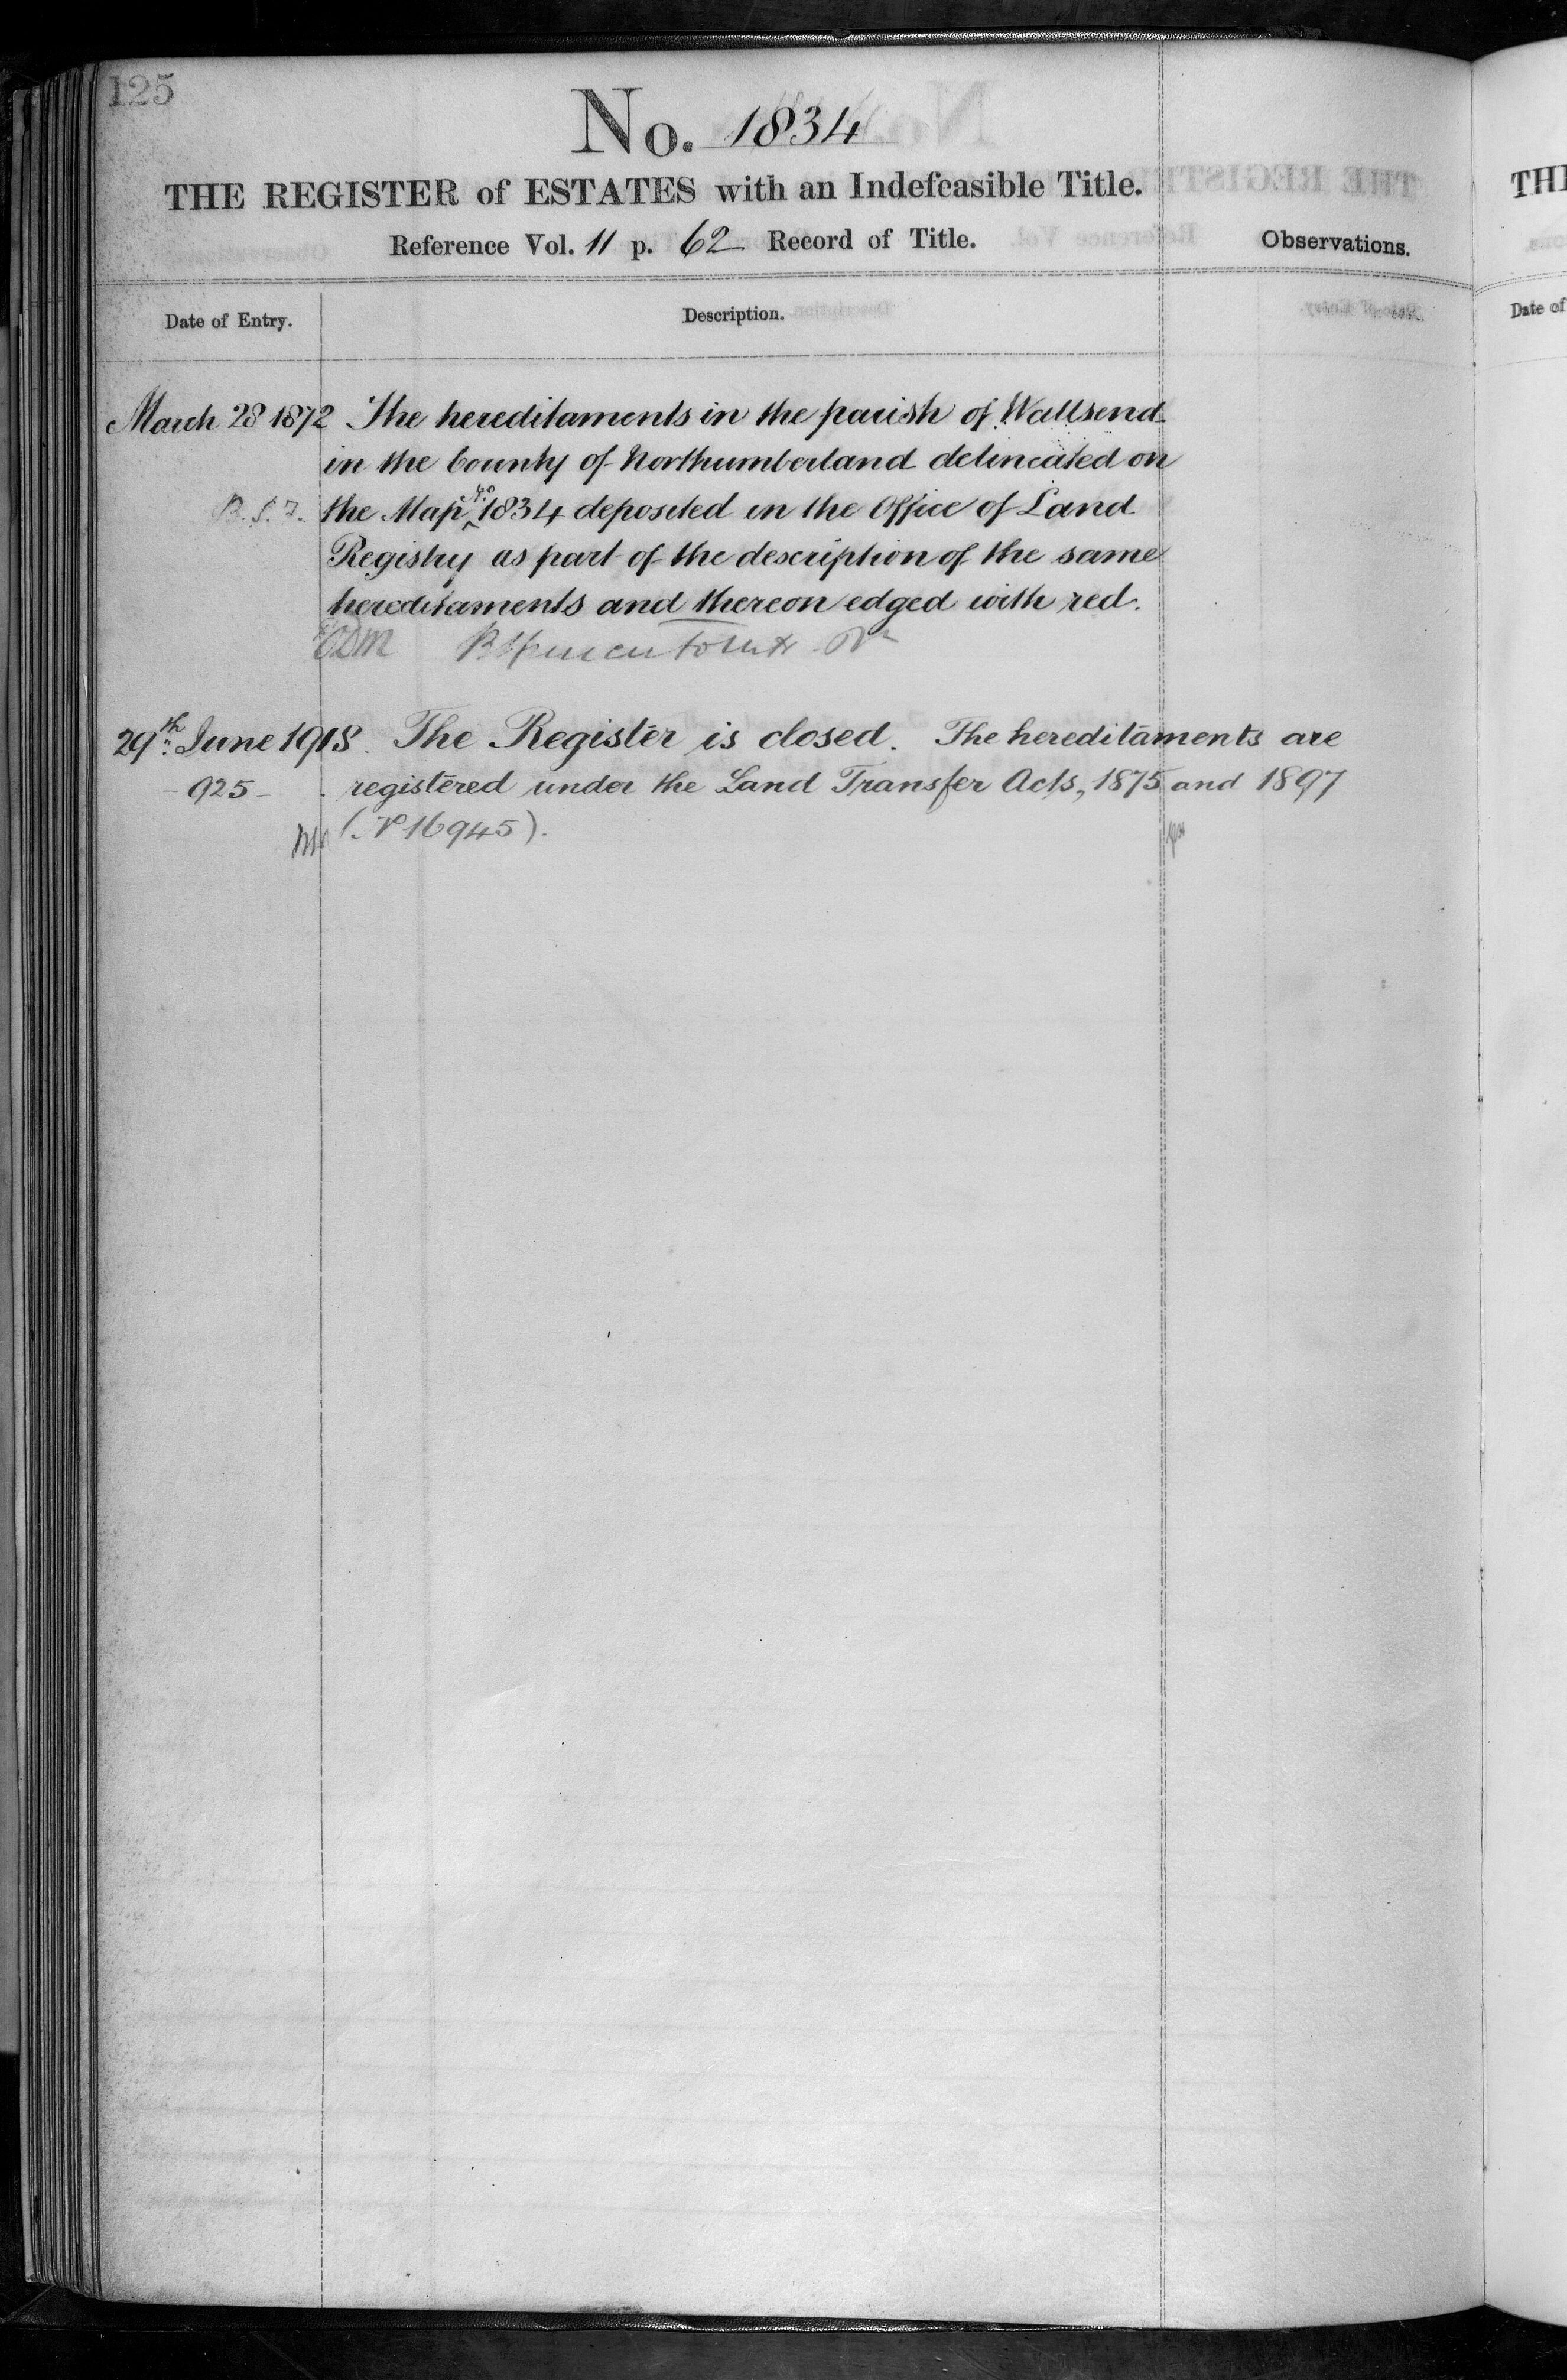 125
No. 1834
THE REGISTER of ESTATES with an Indefeasible Title.
Reference Vol. 11 p. 62 Record of Title.
Observations.
Date of Entry.
Description.
March 28 1872 The hereditaments in the parish of Wallsend
in the County of Northumberland delineated on
B.S.F. the Map No 1834 deposited in the Office of Land
Registry as part of the description of the same
hereditaments and thereon edged with red.
29th June 1918. The Register is closed. The hereditaments are
-925- registered under the Land Transfer Acts, 1875 and 1897
(No 16945).
THE
Date of